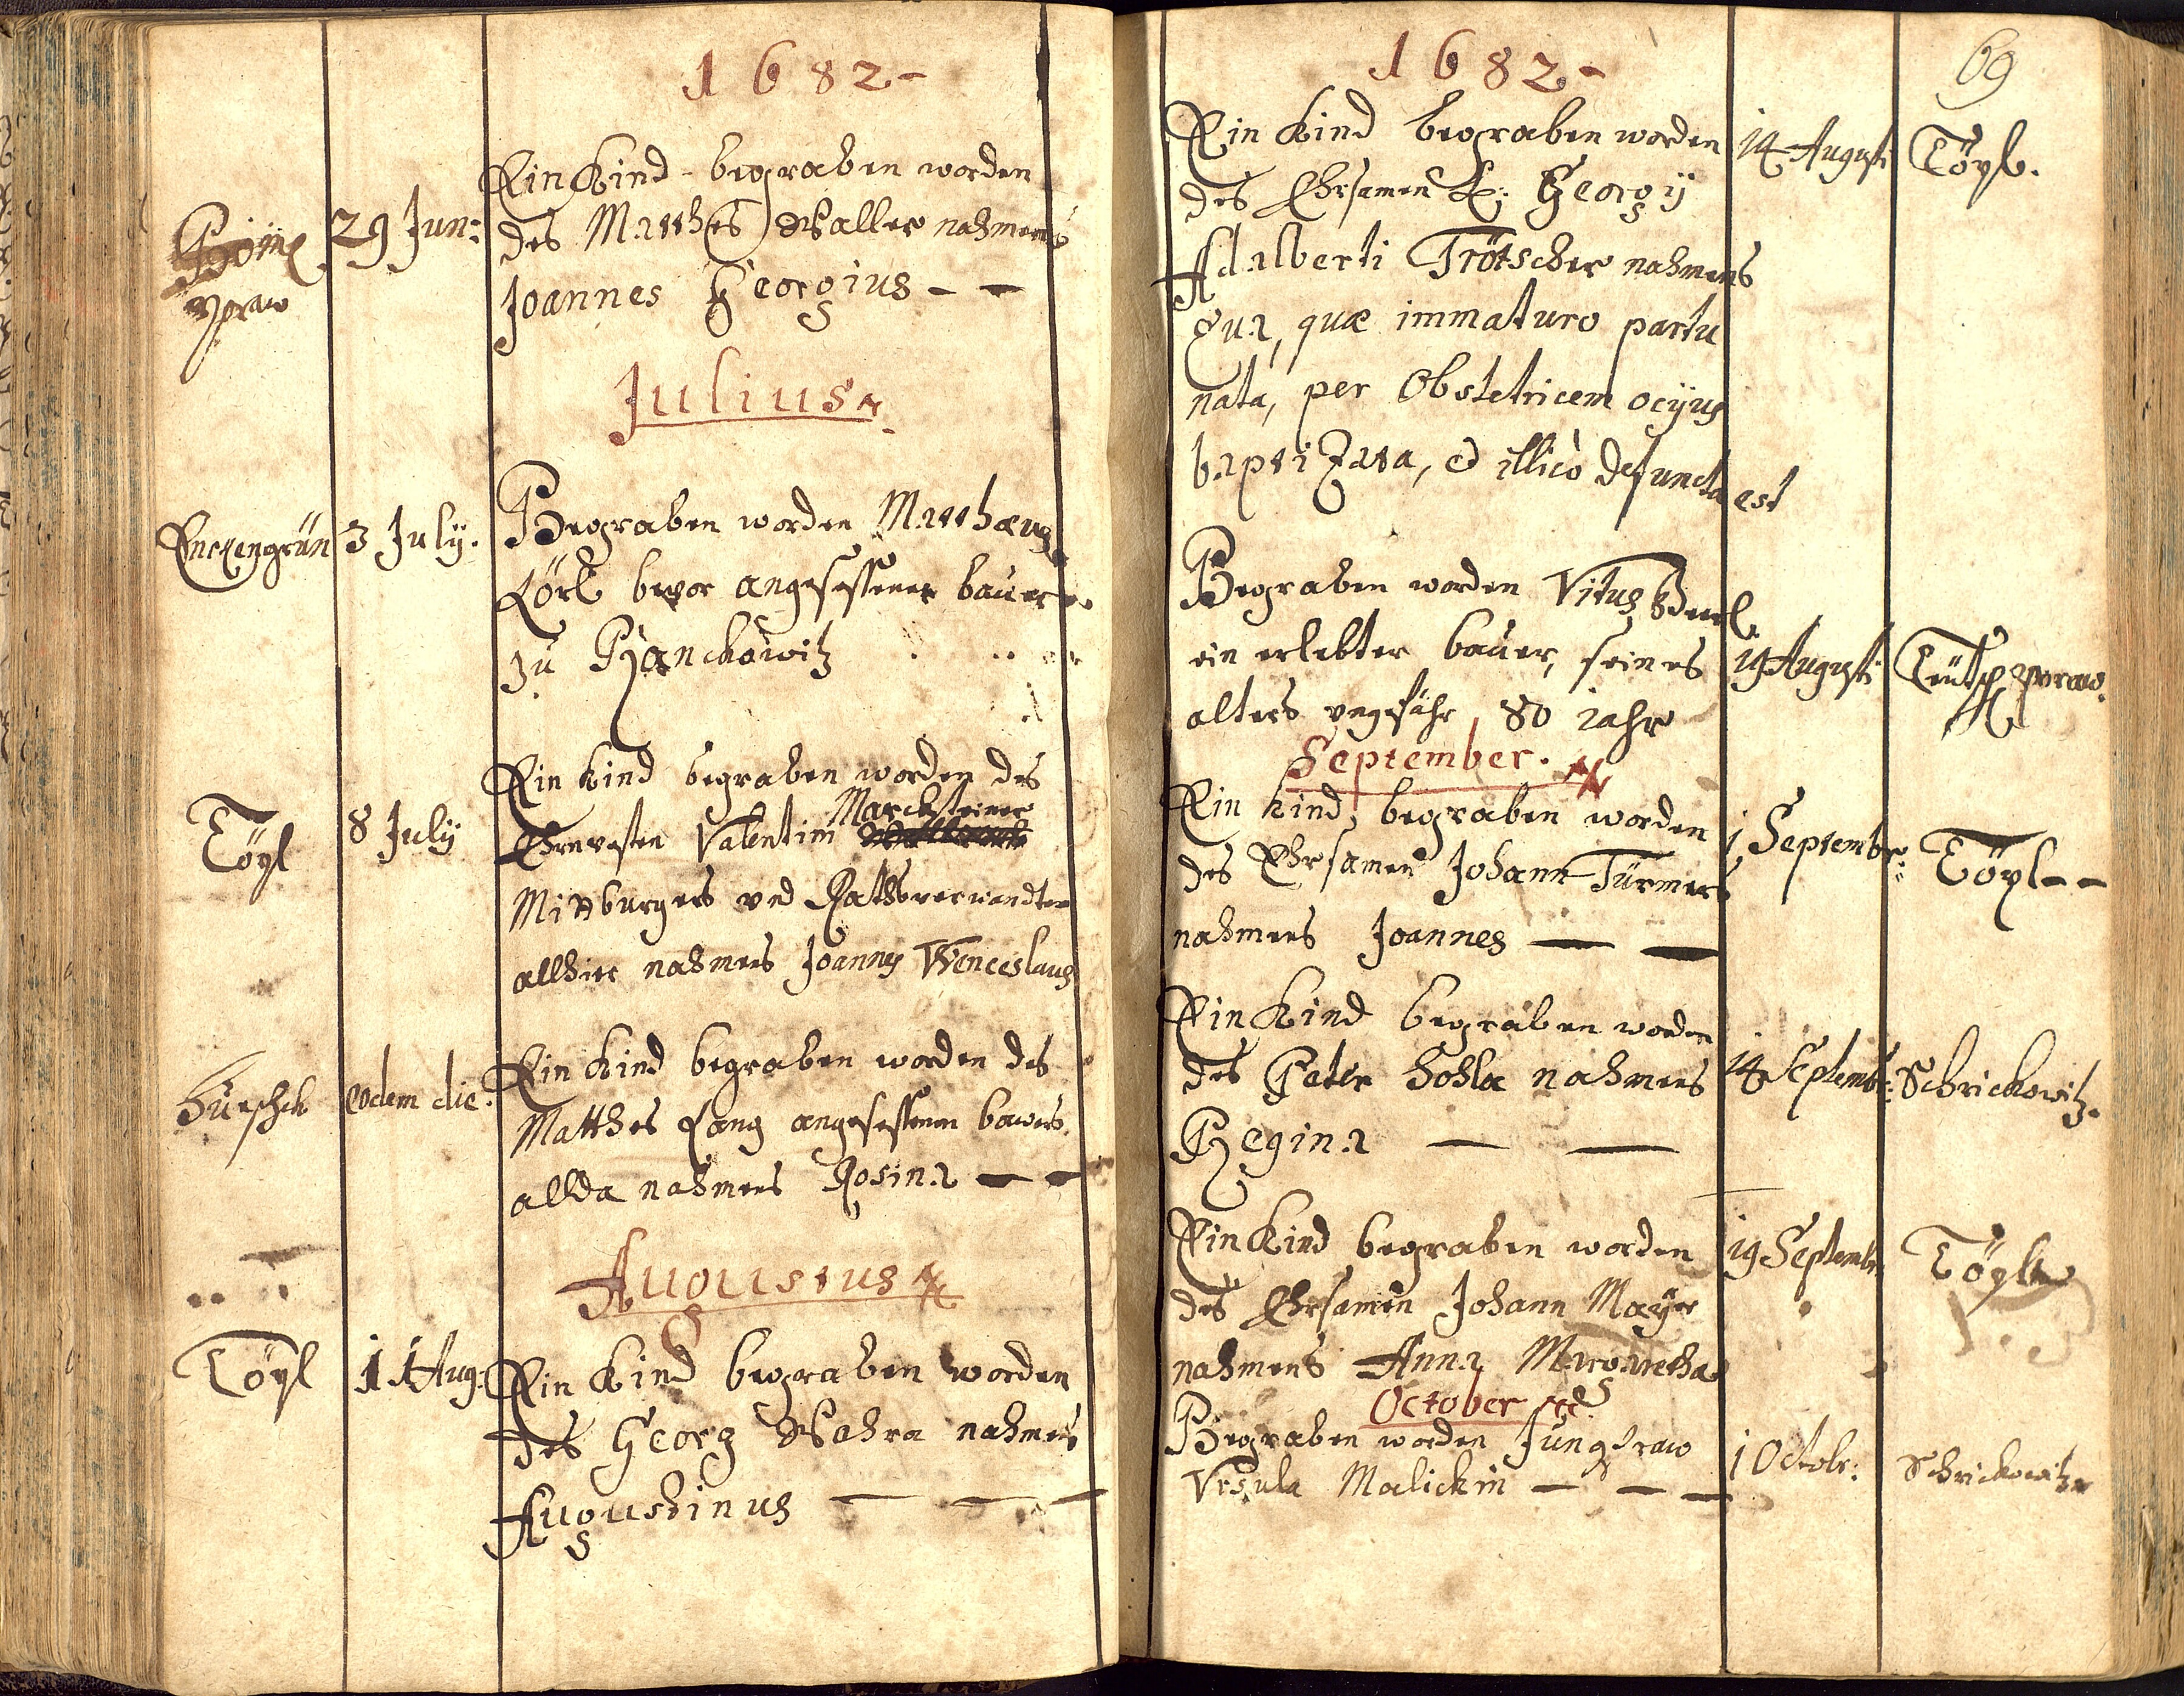 1682
Böhm
praw
29 Jun:
Ein Kind begraben worden
des Matthes Waller nahmens
Joannes Georgius
Julius
Enckengrün
3 July.
Begraben worden Matthaeus
Lörl bevor angesessener bauer
zu Ranckowitz
Töyl
8 July
Ein Kind begraben worden des
Marcksteiner
Ehrnvesten Valentini
Mitburgers vnd Rathsverwandten
allhier nahmens Joannes Wenceslaus
Hürschck
eodem die.
Ein Kind begraben worden des
Matthes Lang angesessenen bawers
allda nahmens Rosina
Augustus
Töyl
11 Aug:
Ein Kind begraben worden
des Georg Wahra nahmens
Augustinus
1682
69
Ein Kind begraben worden
des Ehrsamen H: Georgij
Adalberti Trötscher nahmens
Eva, quæ immaturo partu
nata, per Obstetricem ocijus
baptizata, et illicò defuncta est
14 Augusti
Töyl.
Begraben worden Vitus
ein erlebter bauer, seines
alters vngefähr 80 jahr
19 Augusti
Teütsch praw.
September.
Ein Kind begraben worden
des Ehrsamen Johann Türmers
nahmens Joannes
1 Septembr:
Töyl
Ein Kind begraben worden
des Peter Hohla nahmens
Regina
14 Septemb:
Schrickowitz.
Ein Kind begraben worden
des Ehrsamen Johann Mayr
nahmens Anna Margaretha
19 Septemb:
Töyl
October
Begraben worden Jungfraw
Vrsula Malickin
1 Octobr:
Schrickowitz